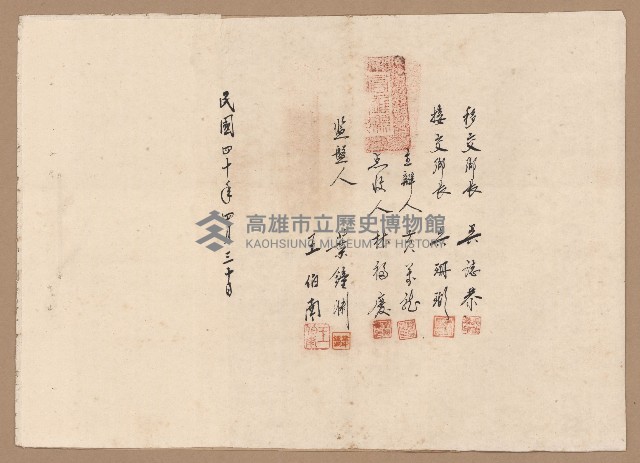 移交鄉長 吳誌恭
接交鄉長 吳珊瑚
主辦人 黃萬龍
點收人 林福慶
監盤人 葉鐘渕
王伯蘭
民國四十年四月三十日
高雄市立歷史博物館
KAOHSIUNG MUSEUM OF HISTORY